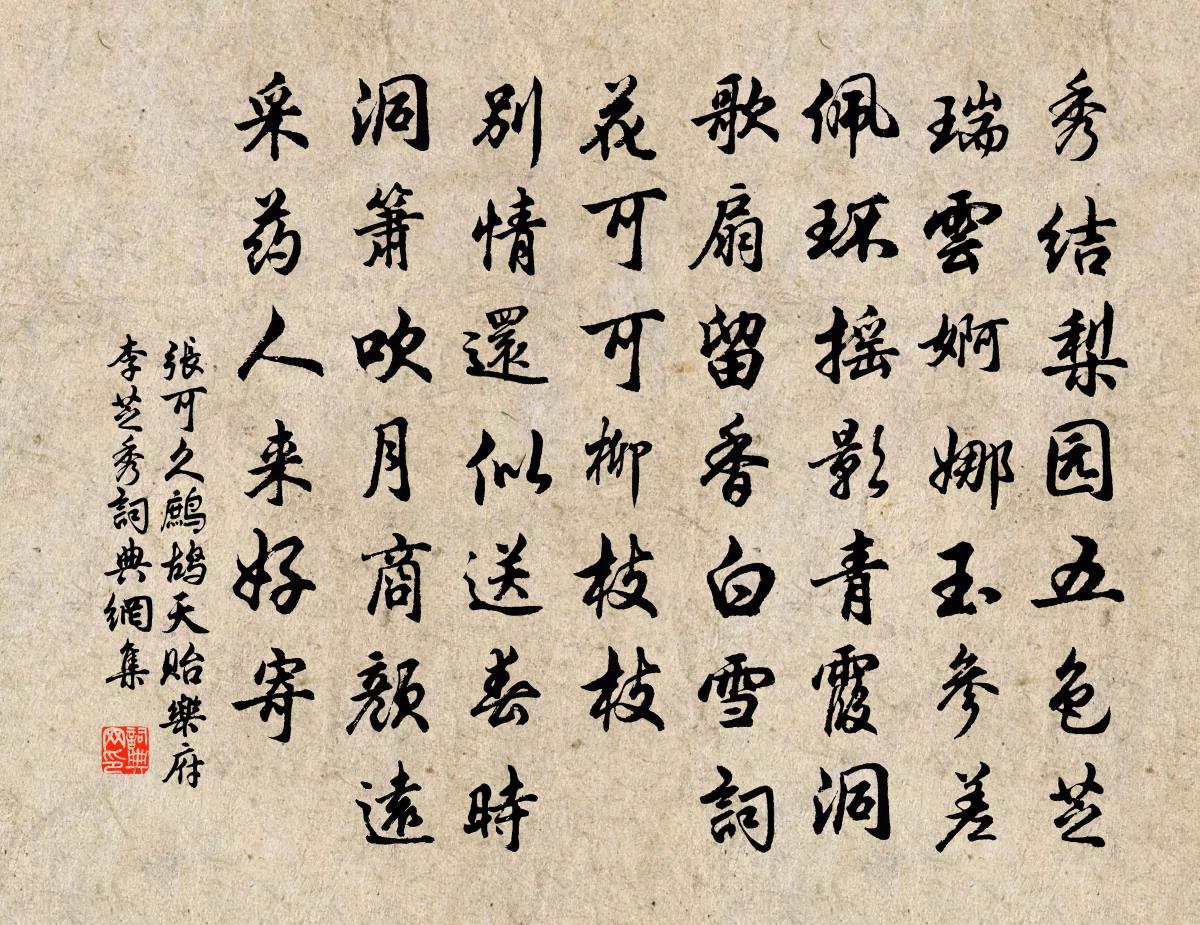 秀结梨园五色芝
瑞雲婀娜玉参差
佩环摇影青霞洞
歌扇留香白雪詞
花可可柳枝枝
别情還似送春時
洞箫吹月商颜遠
采药人来好寄
張可久鷓鸪天贻樂府
李芝秀詞典網集
詞典网印